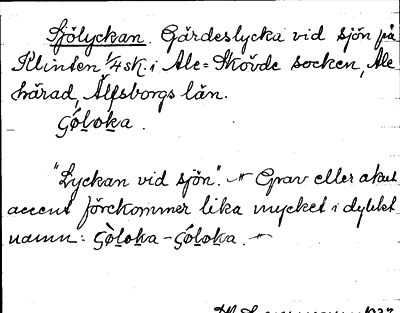 Sjölyckan. Gärdeslycka vid sjön på
Klinten 1/4 sk. i Ale=Skövde socken, Ale
härad, Älfsborgs län.
Gó̱lo̱ka.
"Lyckan vid sjön". Grav eller akut
accent förekommer lika mycket i dylikt
namn: Gò̱lo̱ka - Gó̱lo̱ka.